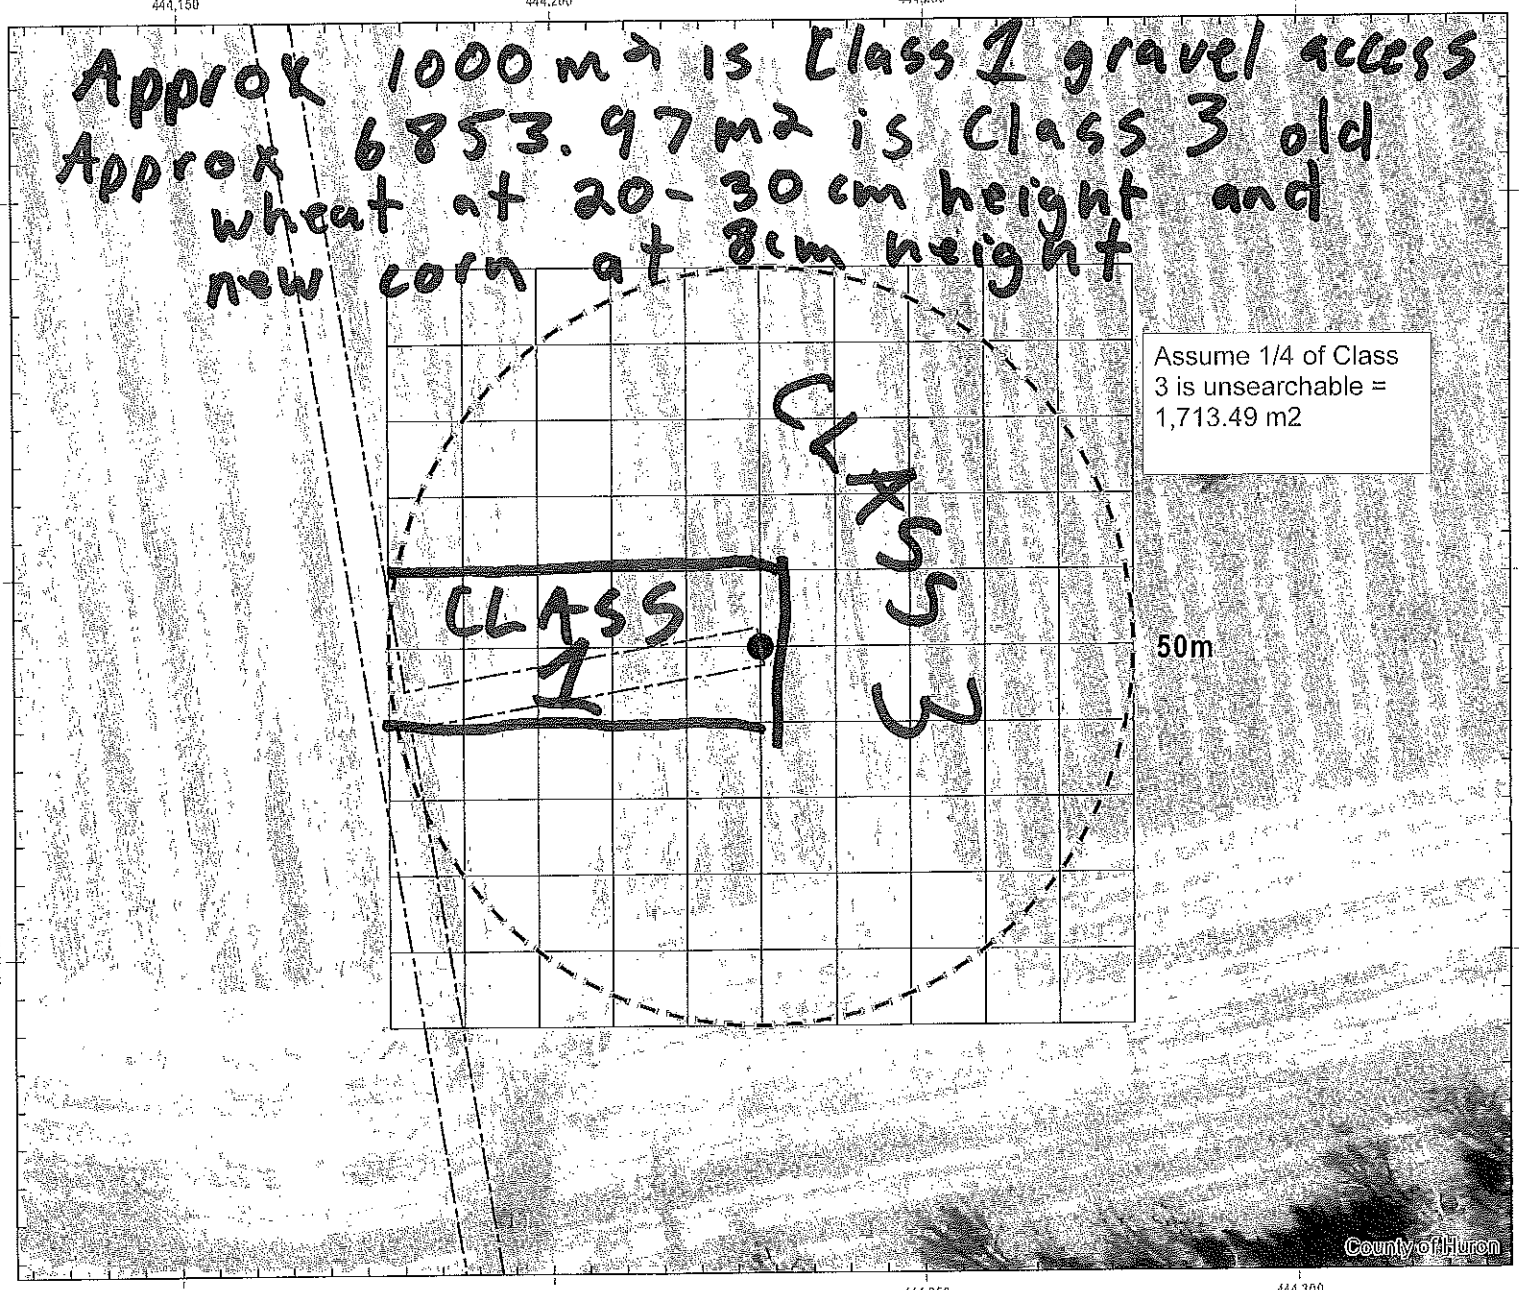 444,150
444,200
Approx 1000 m² is Class 1 gravel access
Approx 6853.97 m² is Class 3 old
wheat at 20-30 cm height and
new corn at 8cm height
Assume 1/4 of Class
3 is unsearchable =
1,713.49 m2
CLASS
3
CLASS
1
50m
County of Huron
444,300